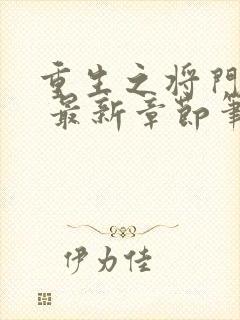 重生之将門
最新章節筆
伊力佳